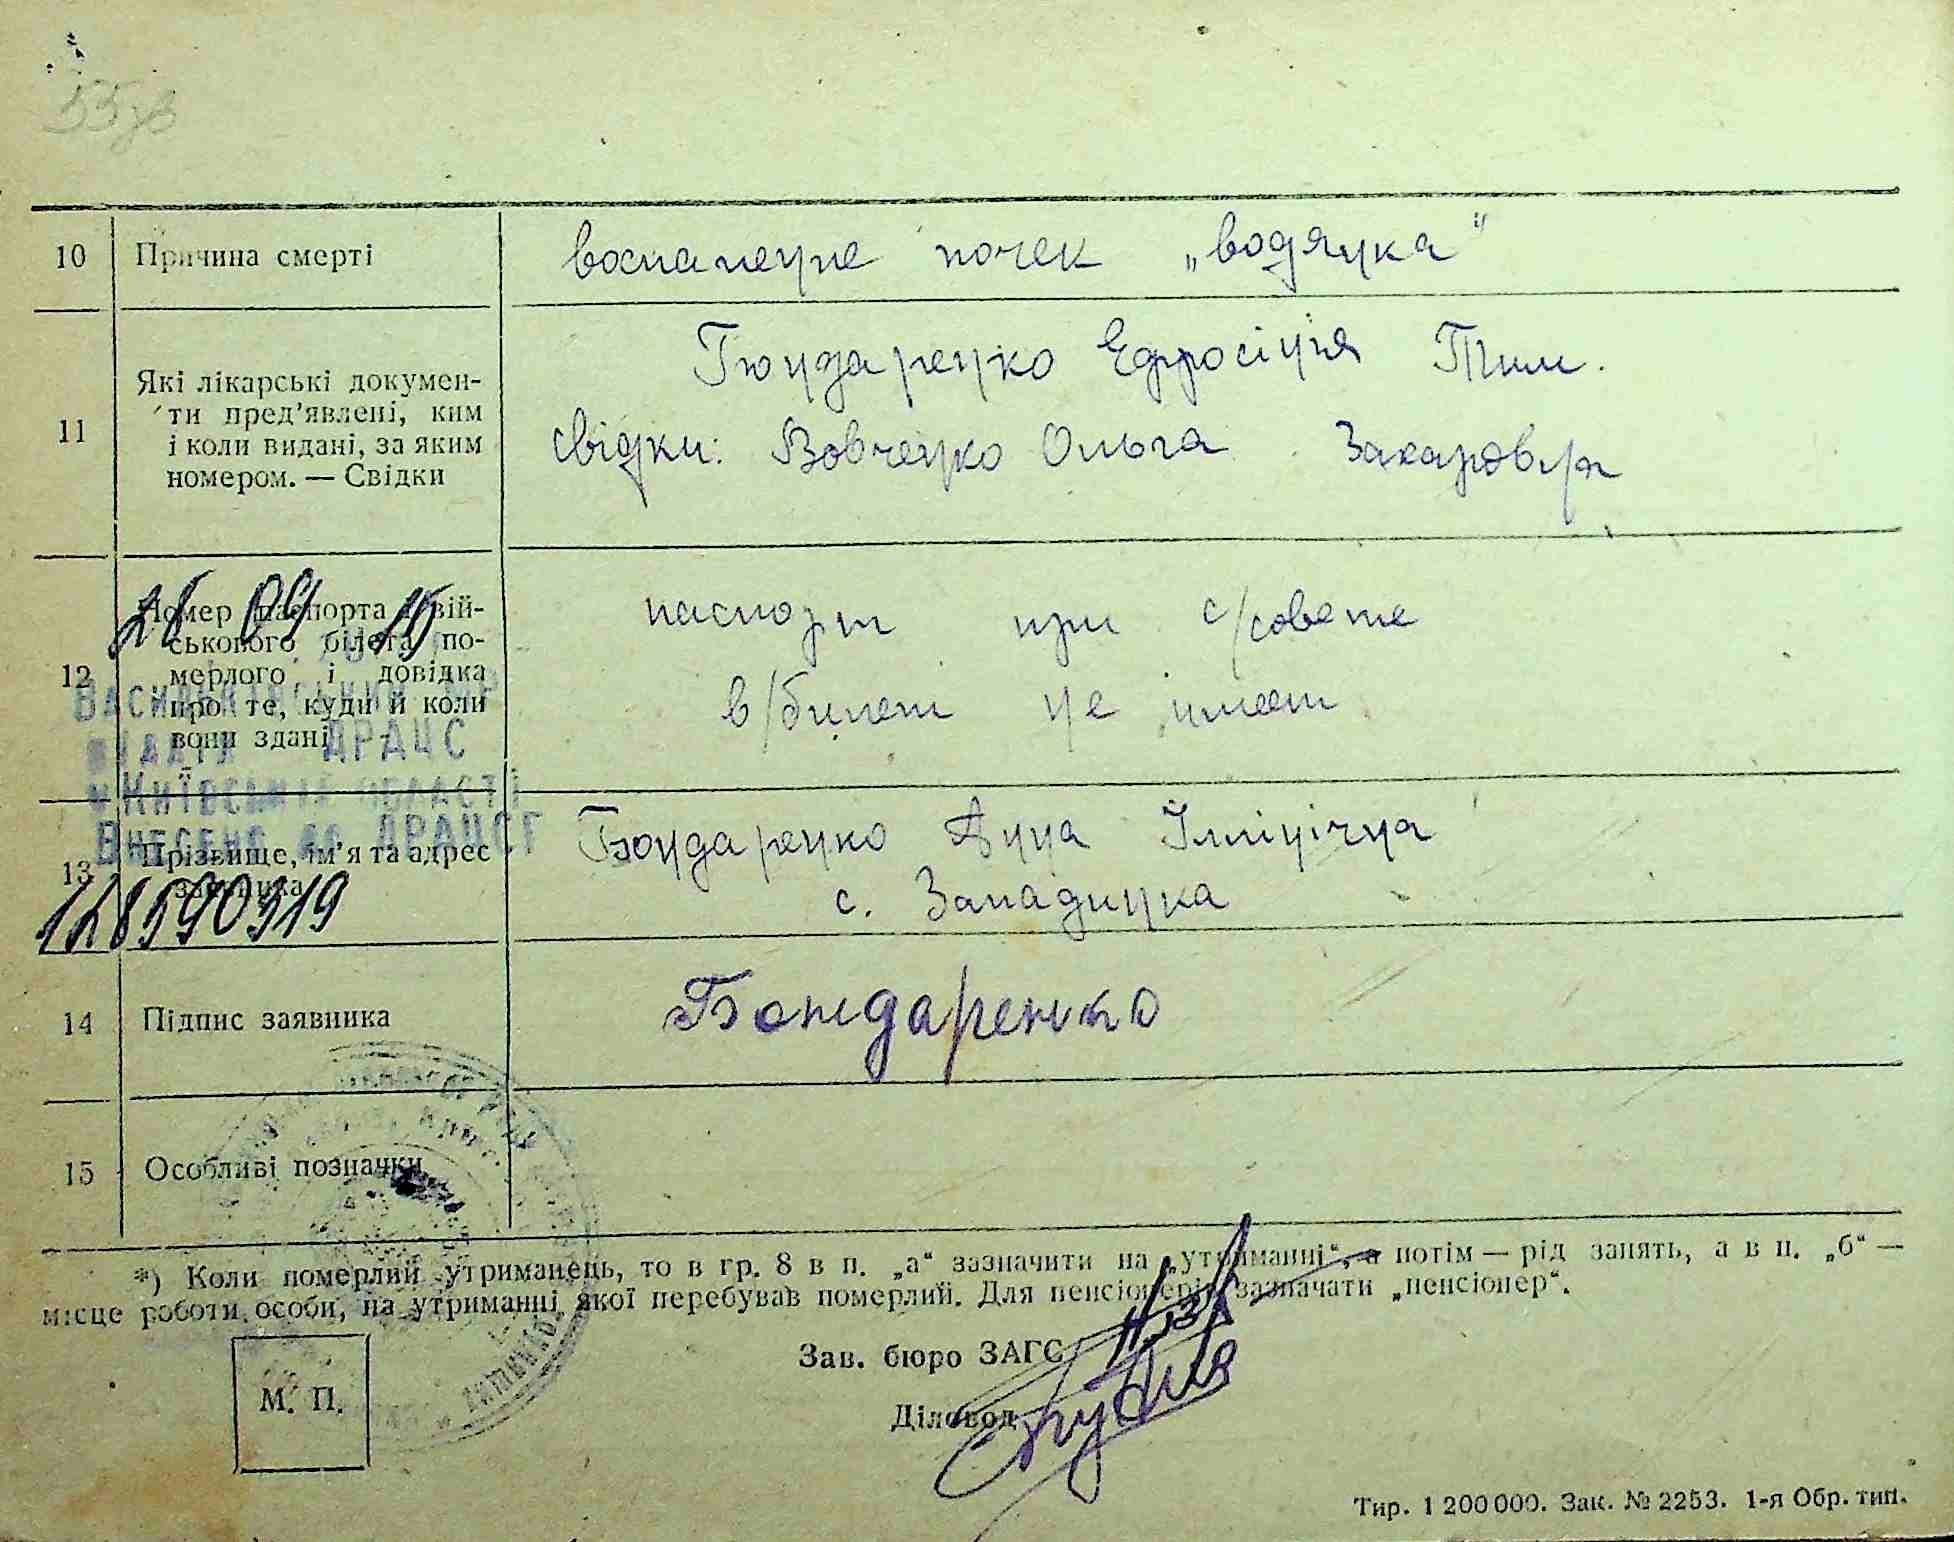 10 Причина смерті воспаление почек „водянка"
Бондаренко Ефросінія Тим.
11 Які лікарські докумен-
ти пред'явлені, ким
і коли видані, за яким
номером. — Свідки
свідки: Вовченко Ольга Захаровна
26 04 15
12 Номер паспорта і вій-
ськового білета по-
мерлого і довідка
про те, куди й коли
вони здані
паспорт при с/совете
в/билет не имеет
Васильківський МР
відділ ДРАЦС
у Київській області
Внесено до ДРАЦСГ
128590319
13 Прізвище, ім'я та адрес
заявника
Бондаренко Анна Іллінічна
с. Западинка
14 Підпис заявника Бондаренко
15 Особливі позначки
*) Коли померлий утриманець, то в гр. 8 в п. „а" зазначити на „утриманні", а потім — рід занять, а в п. „б" —
місце роботи особи, на утриманні якої перебував померлий. Для пенсіонерів зазначати „пенсіонер".
Зав. бюро ЗАГС
М. П.
Діловод
Тир. 1 200 000. Зак. № 2253. 1-я Обр. тип.